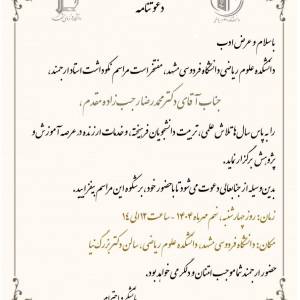 دعوتنامه
با سلام و عرض ادب
دانشکده علوم ریاضی دانشگاه فردوسی مشهد، مفتخر است مراسم نکوداشت استاد ارجمند،
جناب آقای دکتر محمدرضا رجب‌زاده مقدم،
را به پاس سال‌ها تلاش علمی، تربیت دانشجویان فرهیخته، و خدمات ارزنده در عرصه آموزش و
پژوهش برگزار نماید.
بدین وسیله از جنابعالی دعوت می‌شود تا با حضور خود، بر شکوه این مراسم بیفزایید.
زمان: روز چهارشنبه، نهم مهرماه ۱۴۰۴ - ساعت ۱۲ الی ۱۴
مکان: دانشگاه فردوسی مشهد، دانشکده علوم ریاضی، سالن دکتر بزرگ‌نیا
حضور ارجمند شما موجب امتنان و دلگرمی خواهد بود.